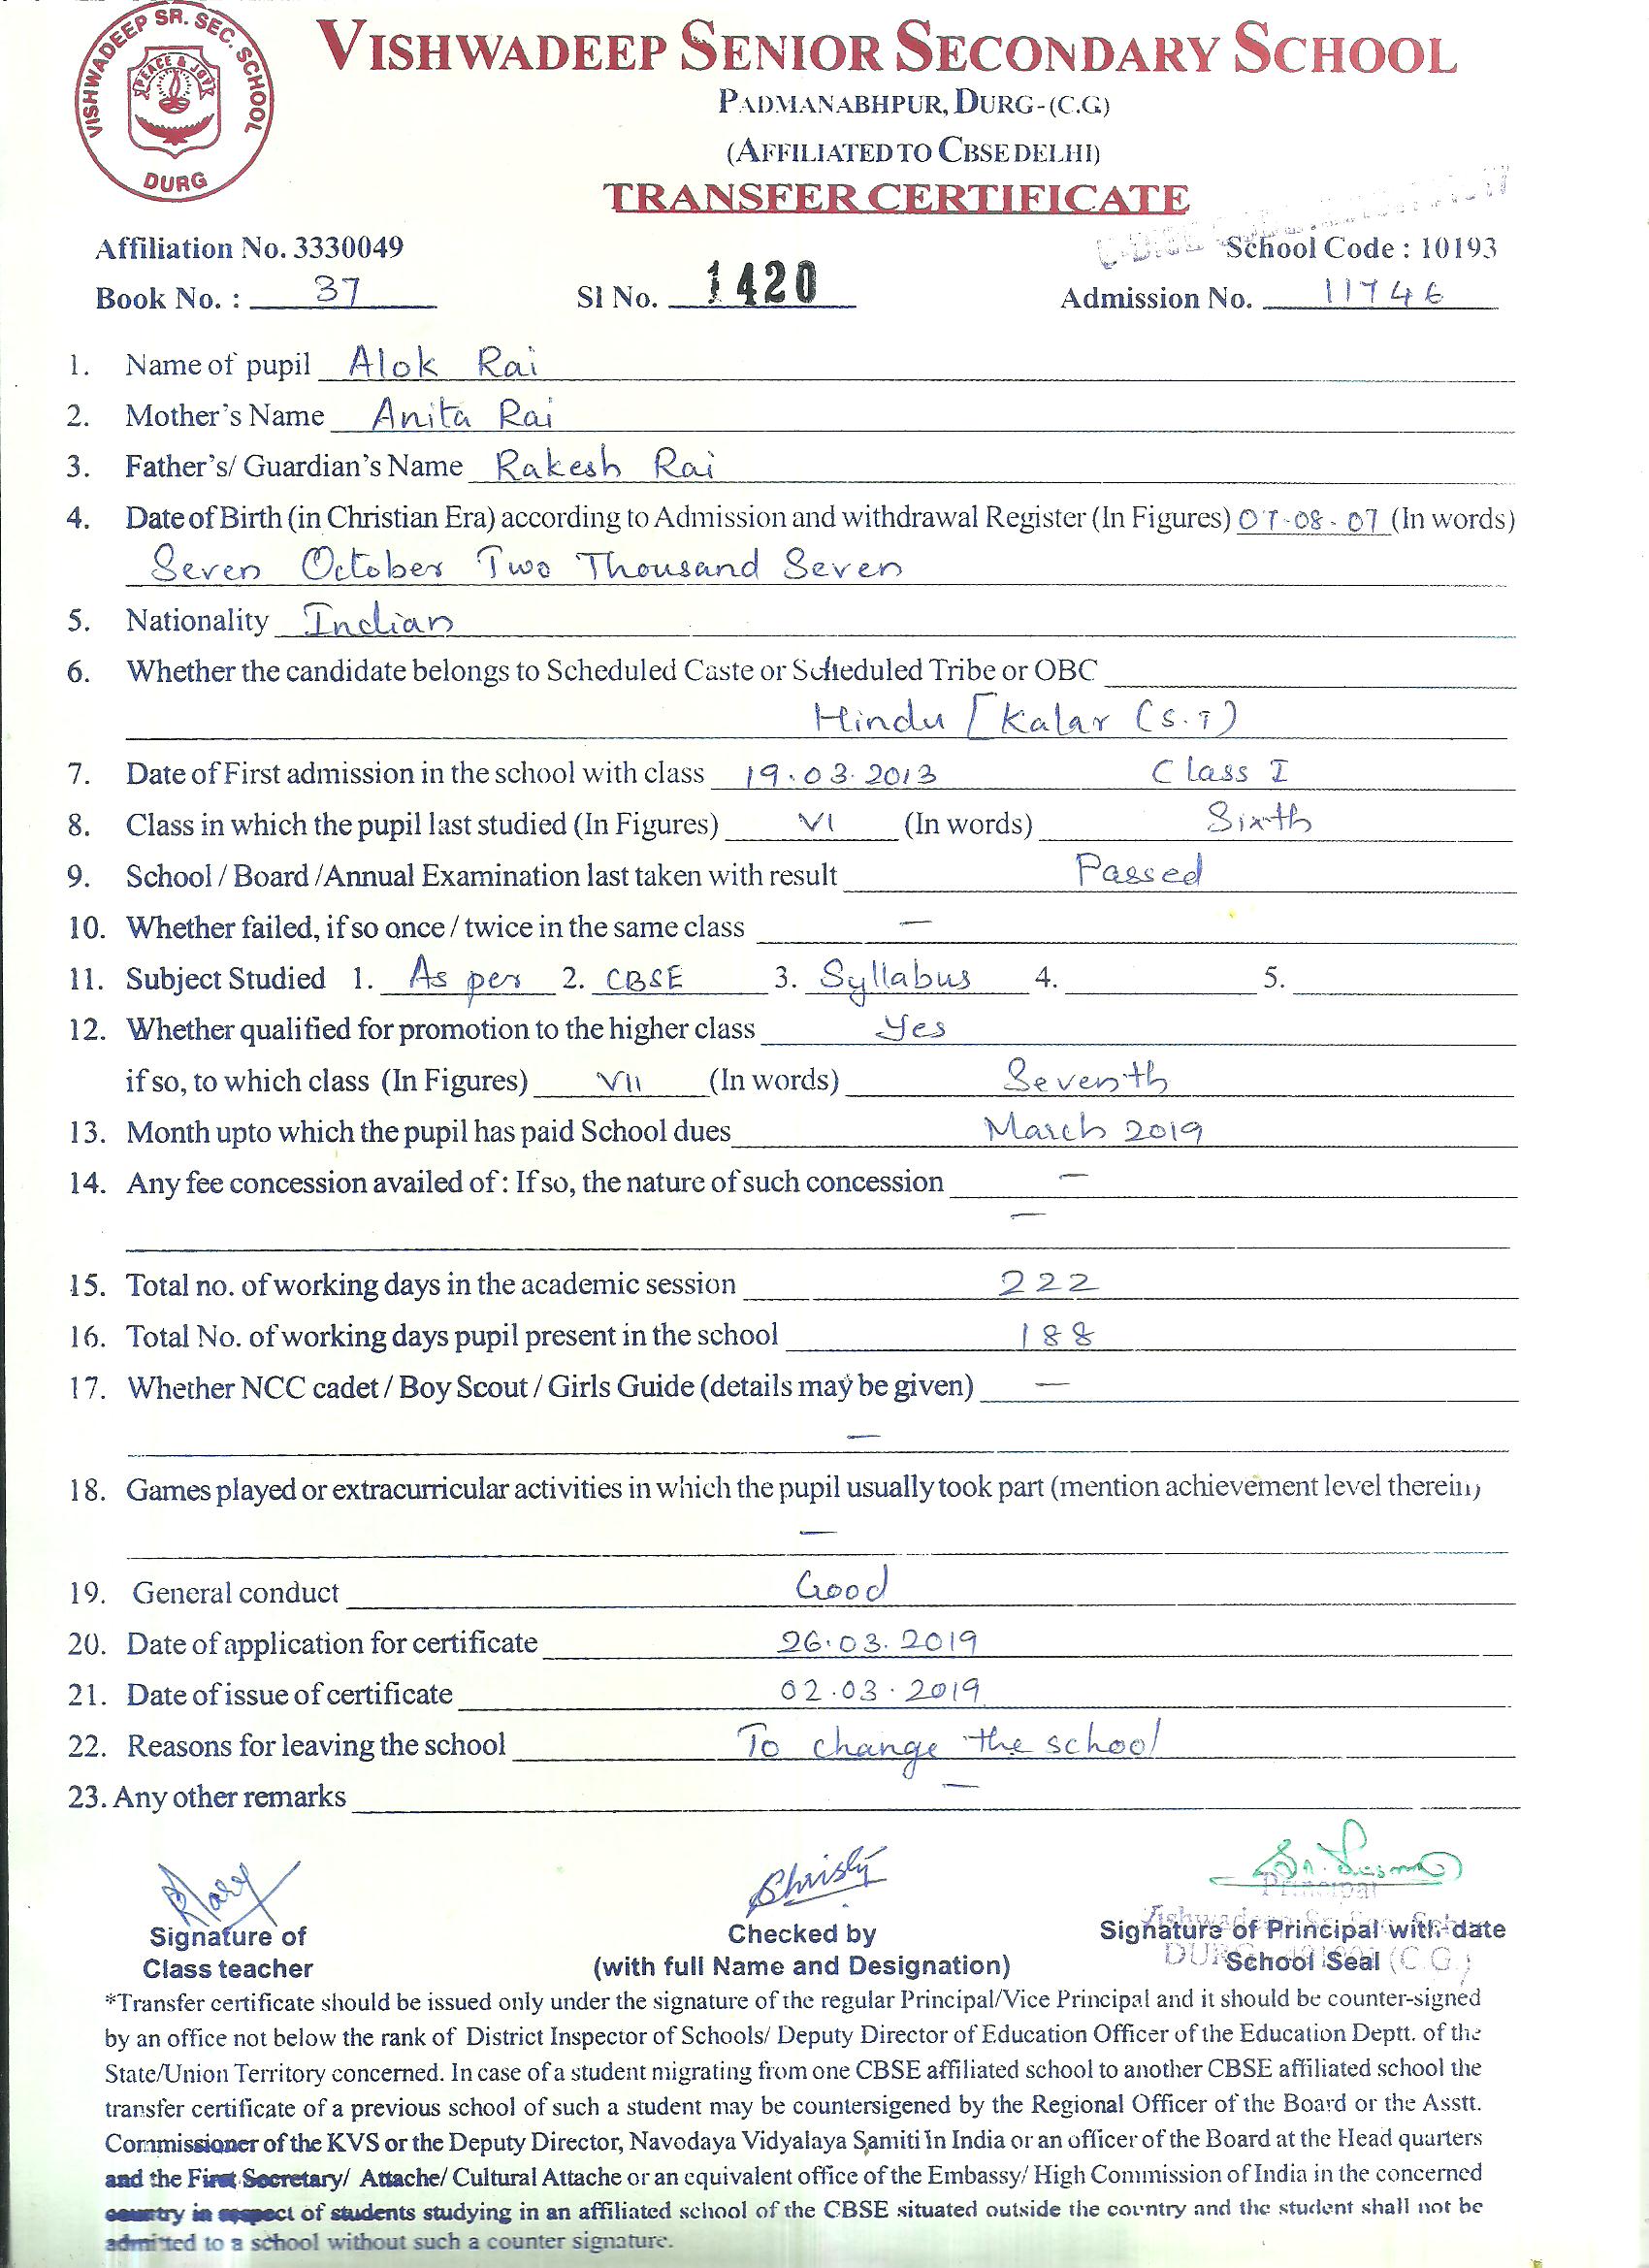 VISHWADEEP SR. SEC. SCHOOL
PEACE & JOY
DURG
VISHWADEEP SENIOR SECONDARY SCHOOL
PADMANABHPUR, DURG-(C.G)
(AFFILIATED TO CBSE DELHI)
TRANSFER CERTIFICATE
Affiliation No. 3330049 School Code : 10193
Book No. : 37 Sl No. 1420 Admission No. 11746
1. Name of pupil Alok Rai
2. Mother's Name Anita Rai
3. Father's/ Guardian's Name Rakesh Rai
4. Date of Birth (in Christian Era) according to Admission and withdrawal Register (In Figures) 07-08-07 (In words)
Seven October Two Thousand Seven
5. Nationality Indian
6. Whether the candidate belongs to Scheduled Caste or Scheduled Tribe or OBC
Hindu [Kalar (S.T)
7. Date of First admission in the school with class 19.03.2013 Class I
8. Class in which the pupil last studied (In Figures) VI (In words) Sixth
9. School / Board /Annual Examination last taken with result Passed
10. Whether failed, if so once / twice in the same class —
11. Subject Studied 1. As per 2. CBSE 3. Syllabus 4. 5.
12. Whether qualified for promotion to the higher class Yes
if so, to which class (In Figures) VII (In words) Seventh
13. Month upto which the pupil has paid School dues March 2019
14. Any fee concession availed of : If so, the nature of such concession —
—
15. Total no. of working days in the academic session 222
16. Total No. of working days pupil present in the school 188
17. Whether NCC cadet / Boy Scout / Girls Guide (details may be given) —
—
18. Games played or extracurricular activities in which the pupil usually took part (mention achievement level therein)
—
19. General conduct Good
20. Date of application for certificate 26.03.2019
21. Date of issue of certificate 02.03.2019
22. Reasons for leaving the school To change the school
23. Any other remarks —
Principal
Signature of Checked by Signature of Principal with date
Class teacher (with full Name and Designation) School Seal
DURG (C.G.)
*Transfer certificate should be issued only under the signature of the regular Principal/Vice Principal and it should be counter-signed
by an office not below the rank of District Inspector of Schools/ Deputy Director of Education Officer of the Education Deptt. of the
State/Union Territory concerned. In case of a student migrating from one CBSE affiliated school to another CBSE affiliated school the
transfer certificate of a previous school of such a student may be countersigned by the Regional Officer of the Board or the Asstt.
Commissioner of the KVS or the Deputy Director, Navodaya Vidyalaya Samiti in India or an officer of the Board at the Head quarters
and the First Secretary/ Attache/ Cultural Attache or an equivalent office of the Embassy/ High Commission of India in the concerned
country in respect of students studying in an affiliated school of the CBSE situated outside the country and the student shall not be
admitted to a school without such a counter signature.